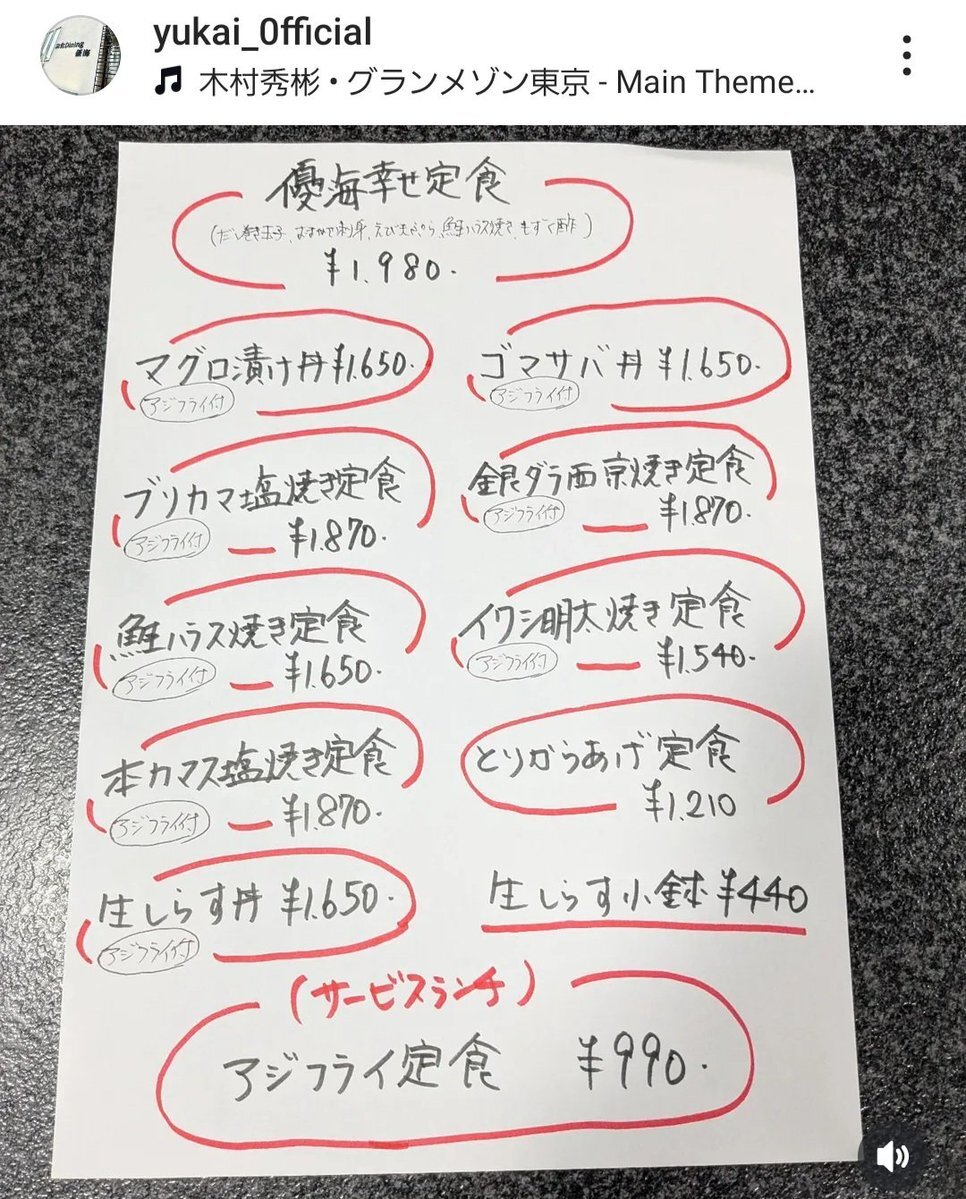 yukai_0fficial
木村秀彬・グランメゾン東京 - Main Theme…
優海幸せ定食
(だし巻き玉子、おまかせ刺身、えび天ぷら、鮭ハラス焼き、もずく酢)
¥1,980.
マグロ漬け丼 ¥1,650.
アジフライ付
ゴマサバ丼 ¥1,650.
アジフライ付
ブリカマ塩焼き定食
アジフライ付 ¥1,870.
銀ダラ西京焼き定食
アジフライ付 ¥1,870.
鮭ハラス焼き定食
アジフライ付 ¥1,650.
イワシ明太焼き定食
アジフライ付 ¥1,540.
本カマス塩焼き定食
アジフライ付 ¥1,870.
とりからあげ定食
¥1,210
生しらす丼 ¥1,650.
アジフライ付
生しらす小鉢 ¥440
(サービスランチ)
アジフライ定食 ¥990.